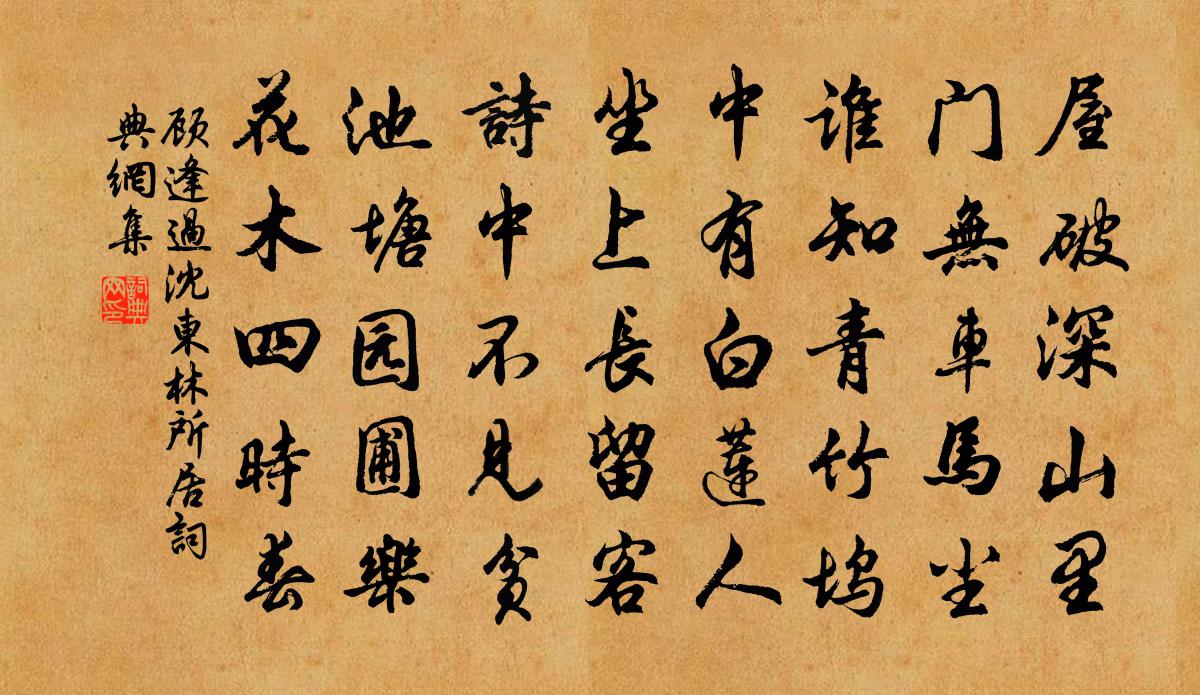 屋破深山里
门無車馬尘
谁知青竹坞
中有白莲人
坐上長留客
詩中不見贫
池塘园圃樂
花木四時春
顾逢過沈東林所居詞
典網集
詞典
网印